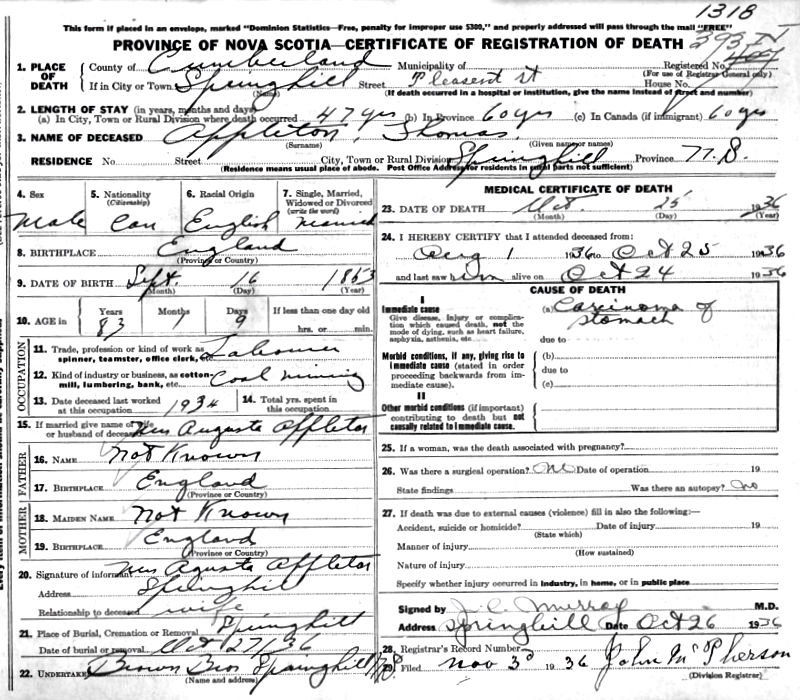 1318
This form if placed in an envelope, marked "Dominion Statistics—Free, penalty for improper use $300," and properly addressed will pass through the mail "FREE"
PROVINCE OF NOVA SCOTIA—CERTIFICATE OF REGISTRATION OF DEATH
1. PLACE OF DEATH
County of Cumberland Municipality of Registered No.
(For use of Registrar General only)
If in City or Town Springhill Street Pleasent st House No.
(Name) (If death occurred in a hospital or institution, give the name instead of street and number)
2. LENGTH OF STAY (in years, months and days)
(a) In City, Town or Rural Division where death occurred 47 yrs (b) In Province 60 yrs (c) In Canada (if immigrant) 60 yrs
3. NAME OF DECEASED Appleton, Thomas
(Surname) (Given name or names)
RESIDENCE No. Street City, Town or Rural Division Springhill Province N.S.
(Residence means usual place of abode. Post Office Address for residents in rural parts not sufficient)
4. Sex Male
5. Nationality (Citizenship) Can
6. Racial Origin English
7. Single, Married, Widowed or Divorced (write the word) Married
8. BIRTHPLACE England
(Province or Country)
9. DATE OF BIRTH Sept. 16 1853
(Month) (Day) (Year)
10. AGE in Years Months Days If less than one day old
83 1 9 hrs. or min.
OCCUPATION
11. Trade, profession or kind of work as spinner, teamster, office clerk, etc. Labourer
12. Kind of industry or business, as cotton-mill, lumbering, bank, etc. Coal mining
13. Date deceased last worked at this occupation 1934 14. Total yrs. spent in this occupation
15. If married give name of wife or husband of deceased Mrs Augusta Appleton
FATHER
16. Name Not Known
17. Birthplace England
(Province or Country)
MOTHER
18. Maiden Name Not Known
19. Birthplace England
(Province or Country)
20. Signature of informant Mrs Agusta Appleton
Address Springhill
Relationship to deceased wife
21. Place of Burial, Cremation or Removal Springhill
Date of burial or removal Oct 27/36
22. Undertaker Brown Bros Springhill N.S.
(Name and address)
MEDICAL CERTIFICATE OF DEATH
23. DATE OF DEATH Oct. 25 1936
(Month) (Day) (Year)
24. I HEREBY CERTIFY that I attended deceased from:
Aug 1 1936 to Oct 25 1936
and last saw him alive on Oct 24 1936
CAUSE OF DEATH
I
Immediate cause
Give disease, injury or complication which caused death, not the mode of dying, such as heart failure, asphyxia, asthenia, etc.
(a) Carcinoma of stomach
due to
Morbid conditions, if any, giving rise to immediate cause (stated in order proceeding backwards from immediate cause).
(b)
due to
(c)
II
Other morbid conditions (if important) contributing to death but not causally related to immediate cause.
25. If a woman, was the death associated with pregnancy?
26. Was there a surgical operation? No Date of operation 19
State findings Was there an autopsy? No
27. If death was due to external causes (violence) fill in also the following:—
Accident, suicide or homicide? Date of injury 19
(State which)
Manner of injury
(How sustained)
Nature of injury
Specify whether injury occurred in industry, in home, or in public place
Signed by J. C. Murray M.D.
Address Springhill Date Oct 26 1936
28. Registrar's Record Number
29. Filed Nov 3rd 1936 John McPherson
(Division Registrar)